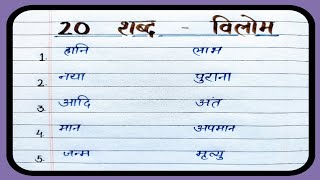 20 शब्द - विलोम
1. हानि लाभ
2. नया पुराना
3. आदि अंत
4. मान अपमान
5. जन्म मृत्यु